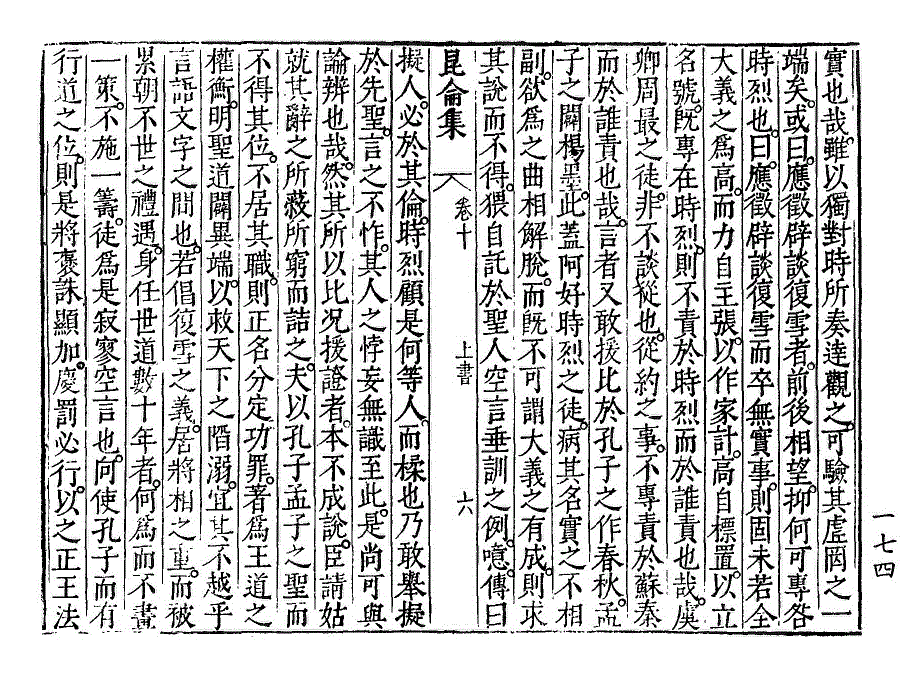 實也哉。雖以獨對時所奏達觀之。可驗其虛罔之一
端矣。或曰。應徵辟談復雪者。前後相望。抑何可專咎
時烈也。曰。應徵辟談復雪而卒無實事。則固未若全
大義之爲高。而力自主張。以作家計。高自標置。以立
名號。旣專在時烈。則不責於時烈而於誰責也哉。虞
卿周最之徒。非不談從也。從約之事。不專責於蘇秦
而於誰責也哉。言者又敢援比於孔子之作春秋。孟
子之闢楊墨。此蓋阿好時烈之徒。病其名實之不相
副。欲爲之曲相解脫。而旣不可謂大義之有成。則求
其說而不得。猥自託於聖人空言垂訓之例。噫。傳曰
昆侖集 卷十 上書 六
擬人。必於其倫。時烈顧是何等人。而樣也乃敢舉擬
於先聖。言之不怍。其人之悖妄無識至此。是尚可與
論辨也哉。然其所以比况援證者。本不成說。臣請姑
就其辭之所蔽所窮而詰之。夫以孔子孟子之聖而
不得其位。不居其職。則正名分定功罪。著爲王道之
權衡。明聖道闢異端。以救天下之陷溺。宜其不越乎
言語文字之間也。若倡復雪之義。居將相之重。而被
累朝不世之禮遇。身任世道數十年者。何爲而不畫
一策。不施一籌。徒爲是寂寥空言也。向使孔子而有
行道之位。則是將褒誅顯加。慶罰必行。以之正王法
一七四